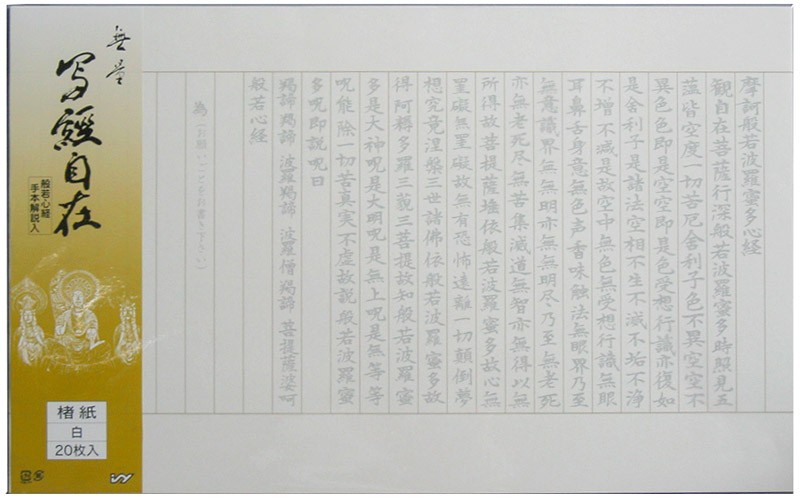 無量
写經自在
般若心経
手本解説入
楮紙
白
20枚入
摩訶般若波羅蜜多心経
観自在菩薩行深般若波羅蜜多時照見五
蘊皆空度一切苦厄舎利子色不異空空不
異色色即是空空即是色受想行識亦復如
是舎利子是諸法空相不生不滅不垢不浄
不増不減是故空中無色無受想行識無眼
耳鼻舌身意無色声香味触法無眼界乃至
無意識界無無明亦無無明尽乃至無老死
亦無老死尽無苦集滅道無智亦無得以無
所得故菩提薩埵依般若波羅蜜多故心無
罣礙無罣礙故無有恐怖遠離一切顛倒夢
想究竟涅槃三世諸佛依般若波羅蜜多故
得阿耨多羅三藐三菩提故知般若波羅蜜
多是大神呪是大明呪是無上呪是無等等
呪能除一切苦真実不虚故説般若波羅蜜
多呪即説呪曰
羯諦羯諦 波羅羯諦 波羅僧羯諦 菩提薩婆呵
般若心経
為（お願いごとをお書き下さい）